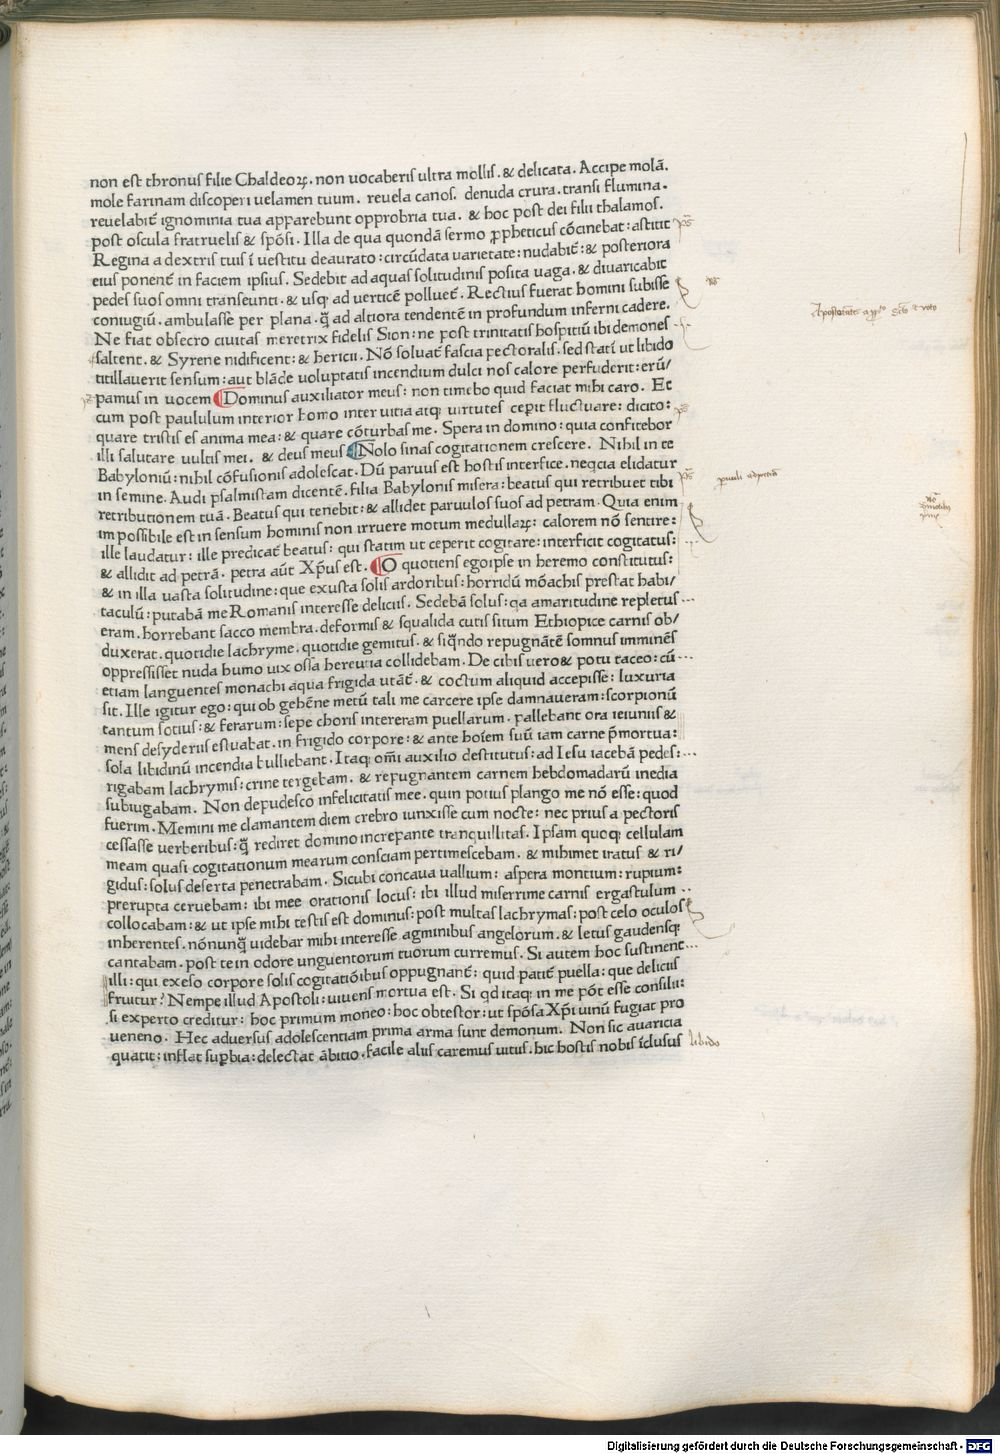 non est thronus filie Chaldeoꝝ. non uocaberis ultra mollis. & delicata. Accipe molā.
mole farinam discoperi uelamen tuum. reuela canos. denuda crura. transi flumina.
reuelabit̄ ignominia tua apparebunt opprobria tua. & hoc post dei filii thalamos.
post oscula fratruelis & spōsi. Illa de qua quondā sermo ꝓpheticus cōcinebat: astitit
Regina a dextris tuis ī uestitu deaurato: circūdata uarietate: nudabit̄: & posteriora
eius ponent̄ in faciem ipsius. Sedebit ad aquas solitudinis posita uaga. & diuaricabit
pedes suos omni transeunti. & usqꝫ ad uerticē polluet̄. Rectius fuerat homini subisse
coniugiū. ambulasse per plana. q̄ꝫ ad altiora tendentē in profundum inferni cadere.
Ne fiat obsecro ciuitas meretrix fidelis Sion: ne post trinitatis hospitiū ibi demones
saltent. & Syrene nidificent: & hericii. Nō soluat̄ fascia pectoralis. sed stati ut libido
titillauerit sensum: aut blāde uoluptatis incendium dulci nos calore perfuderit: erū/
pamus in uocem Dominus auxiliator meus: non timebo quid faciat mihi caro. Et
cum post paululum interior homo inter uitia atqꝫ uirtutes ceperit fluctuare: dicito:
quare tristis es anima mea: & quare cōturbas me. Spera in domino: quia confitebor
illi salutare uultus mei. & deus meus Nolo sinas cogitationem crescere. Nihil in te
Babyloniū: nihil cōfusionis adolescat. Dū paruus est hostis interfice. neqcia elidatur
in semine. Audi psalmistam dicentē. filia Babylonis misera: beatus qui retribuet tibi
retributionem tuā. Beatus qui tenebit: & allidet paruulos suos ad petram. Quia enim
impossibile est in sensum hominis non irruere motum medullaꝝ: calorem nō sentire:
ille laudatur: ille predicat̄ beatus: qui statim ut ceperit cogitare: interficit cogitatus:
& allidit ad petrā. petra aūt Xp̄us est. O quotiens ego ipse in heremo constitutus:
& in illa uasta solitudine: que exusta solis ardoribus: horridū mōachis prestat habi/
taculū: putabā me Romanis interesse deliciis. Sedebā solus: qa amaritudine repletus
eram. horrebant sacco membra. deformis & squalida cutis situm Ethiopice carnis ob/
duxerat. quotidie lachryme. quotidie gemitus. & siqn̄do repugnātē somnus imminēs
oppressisset nuda humo uix ossa herentia collidebam. De cibis uero & potu taceo: cū
etiam languentes monachi aqua frigida utāt̄. & coctum aliquid accepisse: luxuria
sit. Ille igitur ego: qui ob gehēne metū tali me carcere ipse damnaueram: scorpionū
tantum socius: & ferarum: sepe choris intereram puellarum. pallebant ora ieiuniis &
mens desyderiis estuabat. in frigido corpore: & ante hoīem suū iam carne p̄mortua:
sola libidinū incendia bulliebant. Itaqꝫ om̄i auxilio destitutus: ad Iesu iacebā pedes:
rigabam lachrymis: crine tergebam. & repugnantem carnem hebdomadarū inedia
subiugabam. Non depudesco infelicitatis mee. quin potius plango me nō esse: quod
fuerim. Memini me clamantem diem crebro iunxisse cum nocte: nec prius a pectoris
cessasse uerberibus: q̄ꝫ rediret domino increpante tranquillitas. Ipsam quoqꝫ cellulam
meam quasi cogitationum mearum consciam pertimescebam. & mihimet iratus & ri/
gidus: solus deserta penetrabam. Sicubi concaua uallium: aspera montium: rupium:
prerupta cernebam: ibi mee orationis locus: ibi illud miserrime carnis ergastulum
collocabam: & ut ipse mihi testis est dominus: post multas lachrymas: post celo oculos
inherentes. nōnunqꝫ uidebar mihi interesse agminibus angelorum. & letus gaudensqꝫ
cantabam. post te in odore unguentorum tuorum curremus. Si autem hoc sustinent
illi: qui exeso corpore solis cogitatiōibus oppugnant̄: quid patit̄ puella: que deliciis
fruitur? Nempe illud Apostoli: uiuens mortua est. Si qd itaqꝫ in me pōt esse consilii:
si experto creditur: hoc primum moneo: hoc obtestor: ut spōsa Xp̄i uinū fugiat pro
ueneno. Hec aduersus adolescentiam prima arma sunt demonum. Non sic auaricia
quatit: inflat suꝑbia: delectat ābitio. facile aliis caremus uitiis. hic hostis nobis īclusus
libido
Digitalisierung gefördert durch die Deutsche Forschungsgemeinschaft - DFG